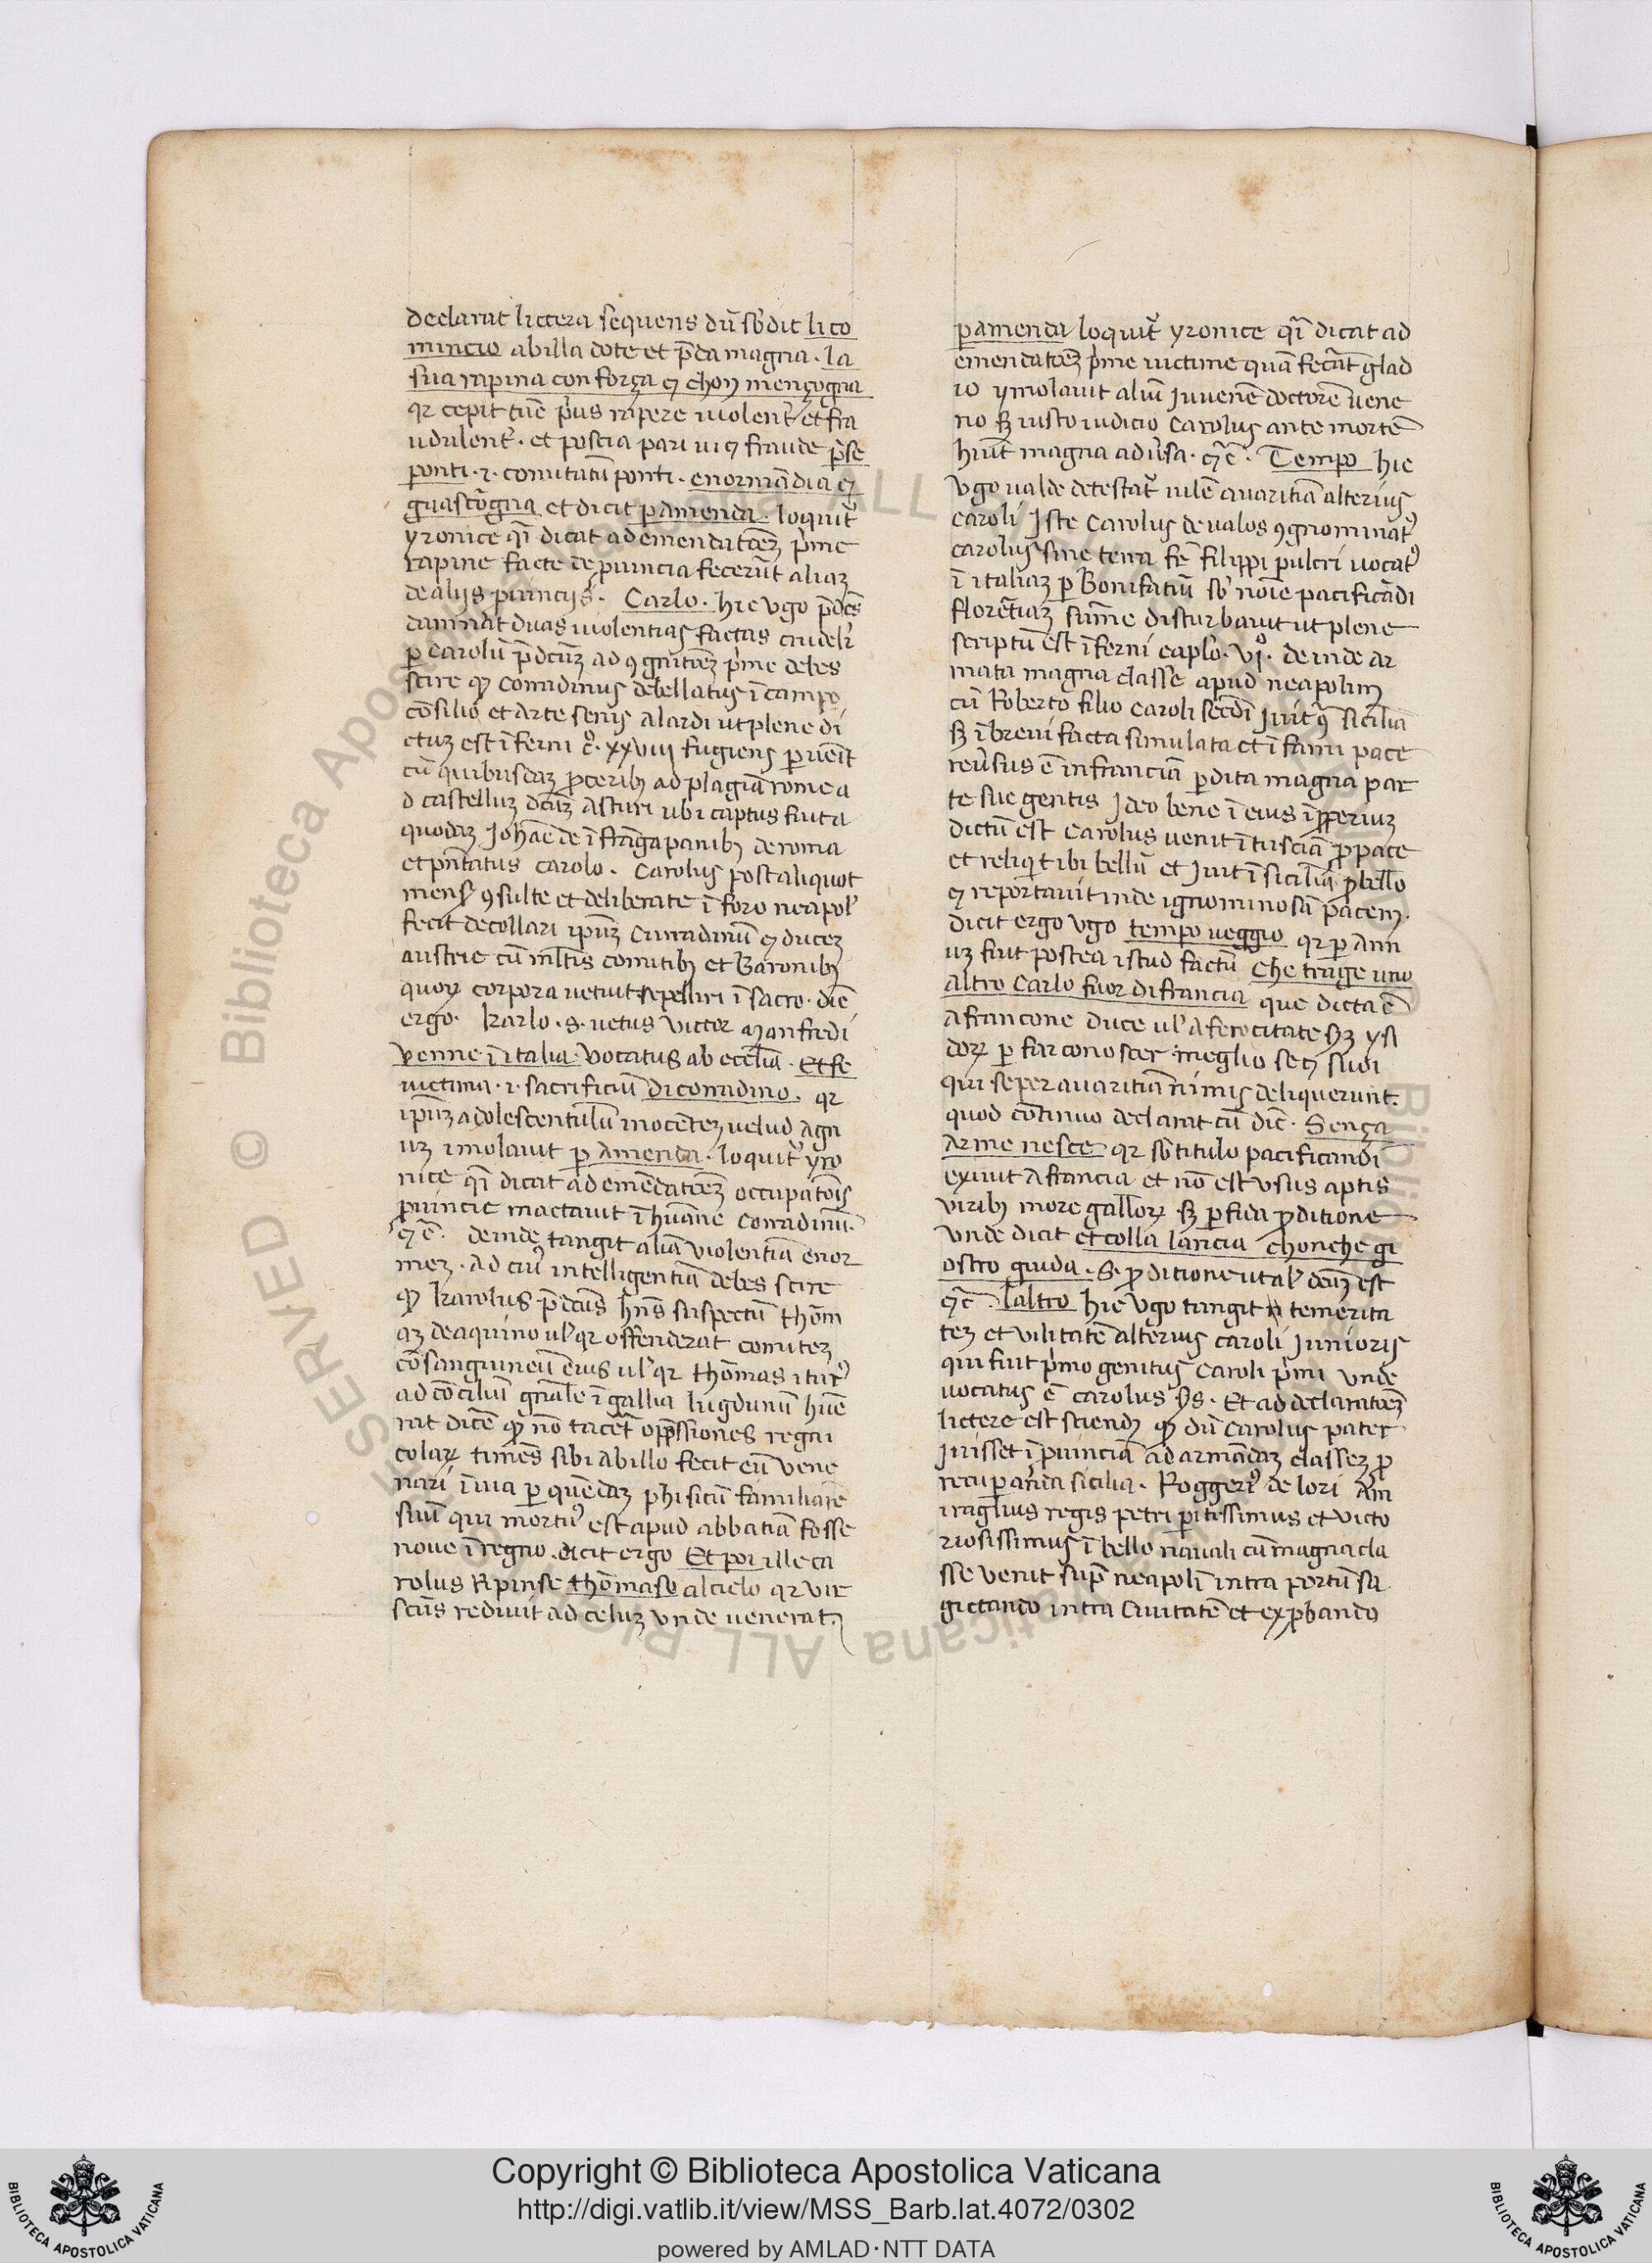 declarat lictera sequens dũ sb'dit li co
mincio ab illa dote et p̃da magna . la
sua rapina con força ⁊ chon mençogna
qr cepit tũc p'us rapere uiolent' et fra
udulent' . et poscia pari ui ⁊ fraude p̃se
ponti . i . comitatũ ponti . e normãdia ⁊
guascõgna et dicit p amenda . loquit'
yronice q̃i dicat ad emendatõeȝ p'me
rapine facte de puincia fecerũt aliaȝ
de alijs puincijs . Carlo . hic vgo p̃dc̃s
damnat duas uiolentias factas crudelr'
p carolũ p̃dcũȝ ad ꝯgnitõeȝ p'me debes
scire qȝ conradinus debellatus ĩ campo
cõsilio et arte senis alardi ut plene di
ctuȝ est ĩferni c̊. xxviij fugiens puẽit
cũ quibusdaȝ pcerib; ad plagiã rome a
d castelluȝ dcũȝ asturi ubi captus fuit a
quodaȝ Johãe de ĩ frãgapanib; de roma
et pñtatus carolo . Carolus post aliquot
mens' ꝯsulte et deliberate ĩ foro neapol'
fecit decollari ip̃uȝ Curradinũ ⁊ duceȝ
austrie cũ ml̃tis comitib; et Baronib;
quoꝝ corpora uetuit sepeliri ĩ sacro . dic̃
ergo . karlo . s . uetus victor Manfredi
venne ĩ italia . vocatus ab ecclia . Et fe
uictima . i . sacrificiũ di conradino . qr
ip̃uȝ adolescentulũ inocẽteȝ uelud agn
uȝ imolauit p amenda . loquit' yro
nice q̃i dicat ad emẽdatõeȝ occupatõis
puincie mactauit ĩhuãne Conradinũ.
⁊c̃ . deinde tangit aliã violentiã enor
meȝ . Ad cui' intelligentiã debes scire
qȝ karolus p̃dcũs hñs suspectũ thom
aȝ de aquino ul' qr offenderat comiteȝ
cõsanguineũ eius ul' qr thomas itur'
ad cõciliũ gñale ĩ gallia lugdunũ huẽ
rat dicẽ qȝ nõ tacẽt opp̃ssiones regni
colaꝝ timẽs sibi ab illo fecit eũ vene
nari ĩ uia p quẽdaȝ phisicũ familiarẽ
suũ qui mortu' est apud abbatiã fosse
noue ĩ regno . dicit ergo Et poi ille ca
rolus Ripinse thomaso al cielo qr vir
scũs rediuit ad celuȝ vnde uenerat.
p amenda loquit' yronice q̃i dicat ad
emendatõeȝ p'me uictime quã fecãt glad
io ymolauit aliũ Juuenẽ doctorẽ vene
no sȝ iusto iudicio Carolus ante mortẽ
hiũt magna adũsa . ⁊c̃ . Tempo hic
vgo ualde detestat' uilẽ auaritiã alterius
Caroli Iste Carolus de valos ꝯgnominat'
carolus sine terra fr̃ filippi pulcri uocat'
ĩ italiaȝ p Bonifatiũ sb' noĩe pacificãdi
florẽtiaȝ sum̃e disturbauit ut plene
scriptũ est ĩferni caplo . vi̊ . deinde ar
mata magna classe apud neapolim
cũ Roberto filio Caroli secdĩ Jiuit ꝯ' siciliã
sȝ ĩ breui facta simulata et ĩ fami pace
reũsus ẽ in franciã pdita magna par
te sue gentis Ideo bene ĩ eius ĩpperiuȝ
dictũ est Carolus uenit ĩ tusciã p pace
et reliqit ibi bellũ et Iuit ĩ siciliã p bello
⁊ reportauit inde ignominosã pacem .
dicit ergo vgo tempo ueggio qr p ann
uȝ fuit postea istud factũ Che trage uno
altro Carlo fuor di francia que dicta ẽ
a francone duce ul' a ferocitate sȝ ysi
doꝝ p far conoscer meglio se ⁊ suoi
qui seper auaritiã nimis deliquerunt.
quod cõtinuo declarat cũ dic̃ . Sença
arme nesce qr sb' titulo pacificandi
exiuit a francia et nõ est vsus aptis
virib; more galloꝝ sȝ pfida pditione
vnde dicit et colla lancia chonche gi
ostro guida . s . pditione ut al' dcũȝ est
⁊c̃ . laltro hic vgo tangit temerita
teȝ et vilitatẽ alterius caroli Junioris
qui fuit p'mo genitus Caroli p'mi vnde
uocatus ẽ carolus s̃s . Et ad declaratõeȝ
lictere est sciendȝ qȝ dũ Carolus pater
Iuisset ĩ puinciã ad armãdaȝ classeȝ p
recuperãda sicilia . Roggeri' de lori Am
iraglius regis petri pitissimus et victo
riosissimus ĩ bello nauali cũ magna cla
sse venit sup neapolĩ intra portũ sa
gictando intra Ciuitatẽ et expbando
Copyright © Biblioteca Apostolica Vaticana
http://digi.vatlib.it/view/MSS_Barb.lat.4072/0302
powered by AMLAD·NTT DATA